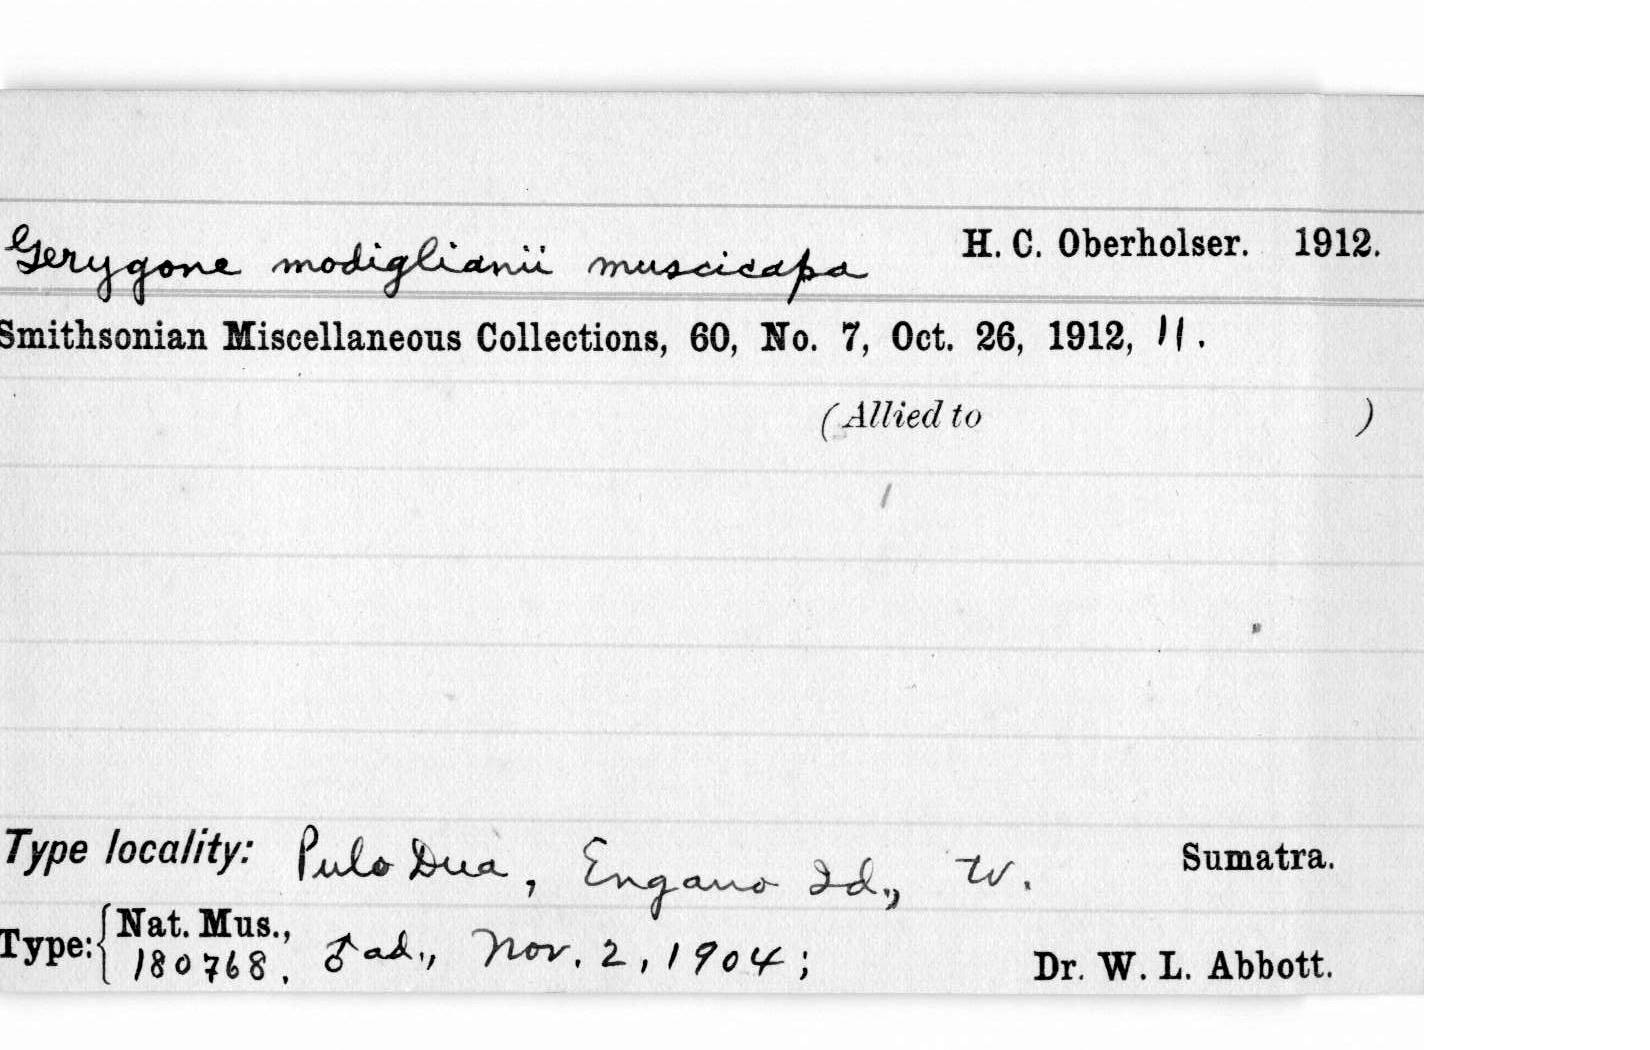 Gerygone modiglianii muscicapa H. C. Oberholser. 1912.
Smithsonian Miscellaneous Collections, 60, No. 7, Oct. 26, 1912, 11.
(Allied to )
Type locality: Pulo Dua, Engano Id., W. Sumatra.
Type: { Nat. Mus.,
180768. ♂ ad., Nov. 2, 1904; Dr. W. L. Abbott.